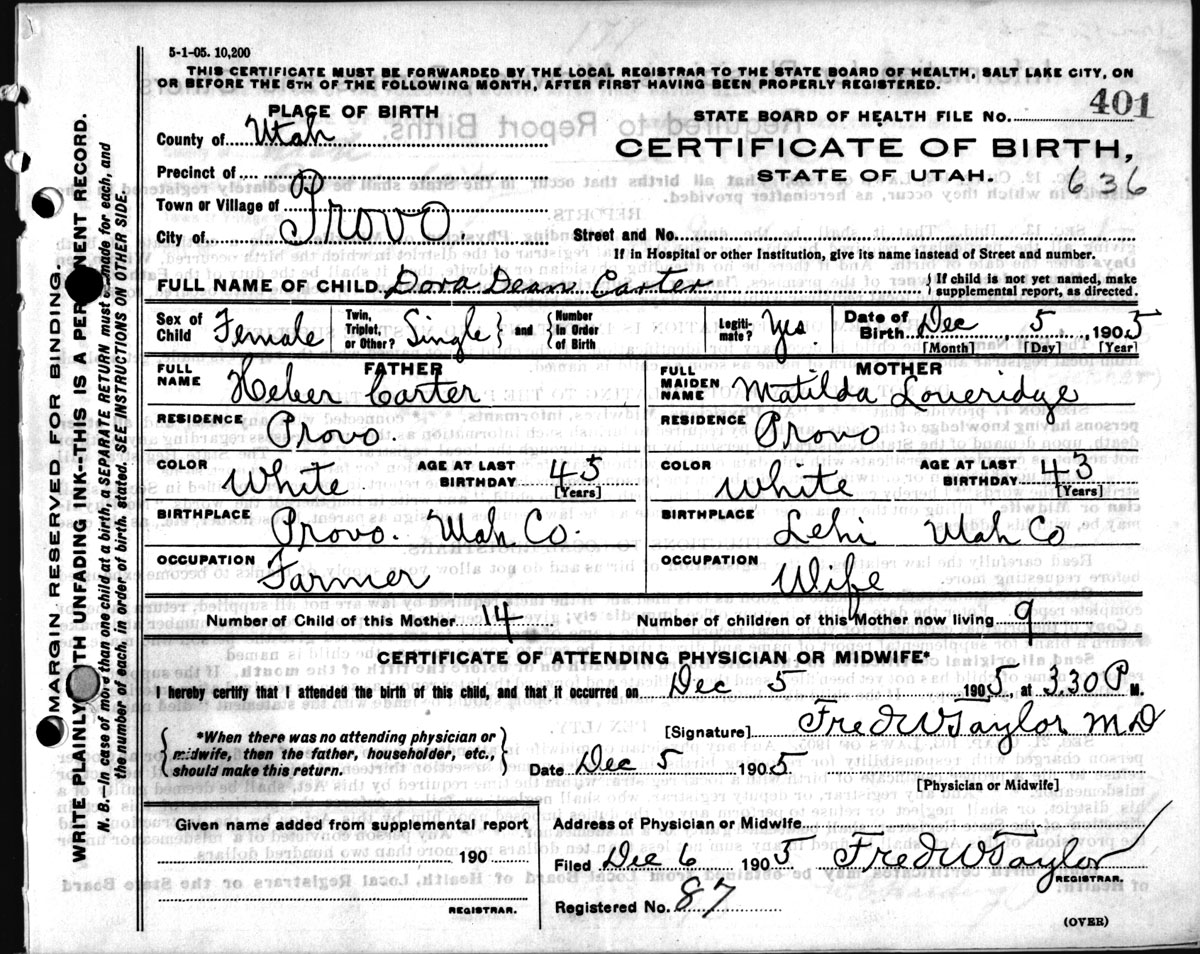 5-1-05. 10,200
THIS CERTIFICATE MUST BE FORWARDED BY THE LOCAL REGISTRAR TO THE STATE BOARD OF HEALTH, SALT LAKE CITY, ON
OR BEFORE THE 5TH OF THE FOLLOWING MONTH, AFTER FIRST HAVING BEEN PROPERLY REGISTERED.
PLACE OF BIRTH
County of Utah
Precinct of
Town or Village of
City of Provo.
STATE BOARD OF HEALTH FILE NO. 401
CERTIFICATE OF BIRTH,
STATE OF UTAH. 636
Street and No.
If in Hospital or other Institution, give its name instead of Street and number.
FULL NAME OF CHILD Dora Dean Carter
If child is not yet named, make
supplemental report, as directed.
Sex of Child Female
Twin, Triplet, or Other? Single and Number in Order of Birth
Legitimate? Yes.
Date of Birth Dec 5 1905
[Month] [Day] [Year]
FATHER
FULL NAME Heber Carter
RESIDENCE Provo
COLOR White AGE AT LAST BIRTHDAY 45 [Years]
BIRTHPLACE Provo. Utah Co.
OCCUPATION Farmer
MOTHER
FULL MAIDEN NAME Matilda Loveridge
RESIDENCE Provo
COLOR White AGE AT LAST BIRTHDAY 43 [Years]
BIRTHPLACE Lehi Utah Co
OCCUPATION Wife
Number of Child of this Mother 14 Number of children of this Mother now living 9
CERTIFICATE OF ATTENDING PHYSICIAN OR MIDWIFE*
I hereby certify that I attended the birth of this child, and that it occurred on Dec 5 1905, at 3.30 P M.
*When there was no attending physician or
midwife, then the father, householder, etc.,
should make this return.
[Signature] Fred W Taylor M.D
Date Dec 5 1905
[Physician or Midwife]
Given name added from supplemental report
190
REGISTRAR.
Address of Physician or Midwife
Filed Dec 6 1905 Fred W Taylor
REGISTRAR.
Registered No. 87
(OVER)
MARGIN RESERVED FOR BINDING.
WRITE PLAINLY WITH UNFADING INK--THIS IS A PERMANENT RECORD.
N. B.--In case of more than one child at a birth, a SEPARATE RETURN must be made for each, and
the number of each, in order of birth, stated. SEE INSTRUCTIONS ON OTHER SIDE.